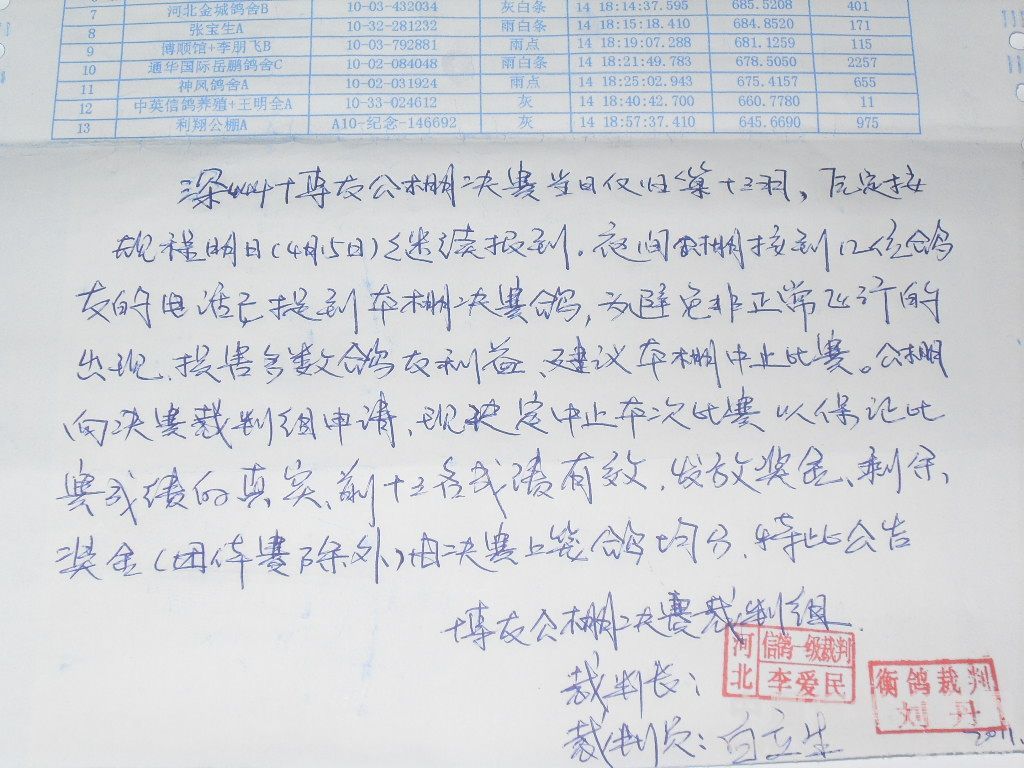 7 河北金城鸽舍B 10-03-432034 灰白条 14 18:14:37.595 685.5208 401
8 张宝生A 10-32-281232 雨白条 14 18:15:18.410 684.8520 171
9 博顺馆+李朋飞B 10-03-792881 雨点 14 18:19:07.288 681.1259 115
10 通华国际岳鹏鸽舍C 10-02-084048 雨白条 14 18:21:49.783 678.5050 2257
11 神凤鸽舍A 10-02-031924 雨点 14 18:25:02.943 675.4157 655
12 中英信鸽养殖+王明全A 10-33-024612 灰 14 18:40:42.700 660.7780 11
13 利翔公棚A A10-纪念-146692 灰 14 18:57:37.410 645.6690 975
深圳博友公棚决赛当日仅归巢十三羽,后定按
规程明日(4月15日)继续报到。夜间公棚接到几位鸽
友的电话已捉到本棚决赛鸽,为避免非正常飞行的
出现、损害多数鸽友利益、建议本棚中止比赛。公棚
向决赛裁判组申请,现决定中止本次比赛以保证比
赛成绩的真实、前十三名成绩有效,发放奖金、剩余
奖金(团体赛除外)由决赛上笼鸽均分,特此公告
博友公棚决赛裁判组
裁判长:
河北 信鸽一级裁判 李爱民
衡鸽裁判 刘丹
裁判员:白立生
2011.